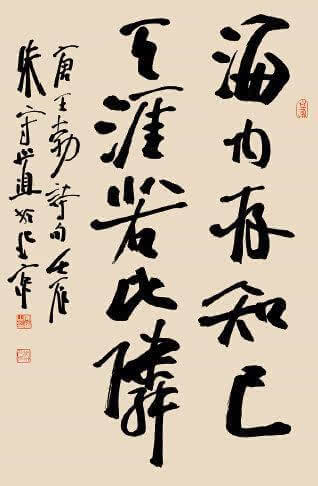 海内存知己
天涯若比隣
唐王勃詩句壬辰
朱守道於北京